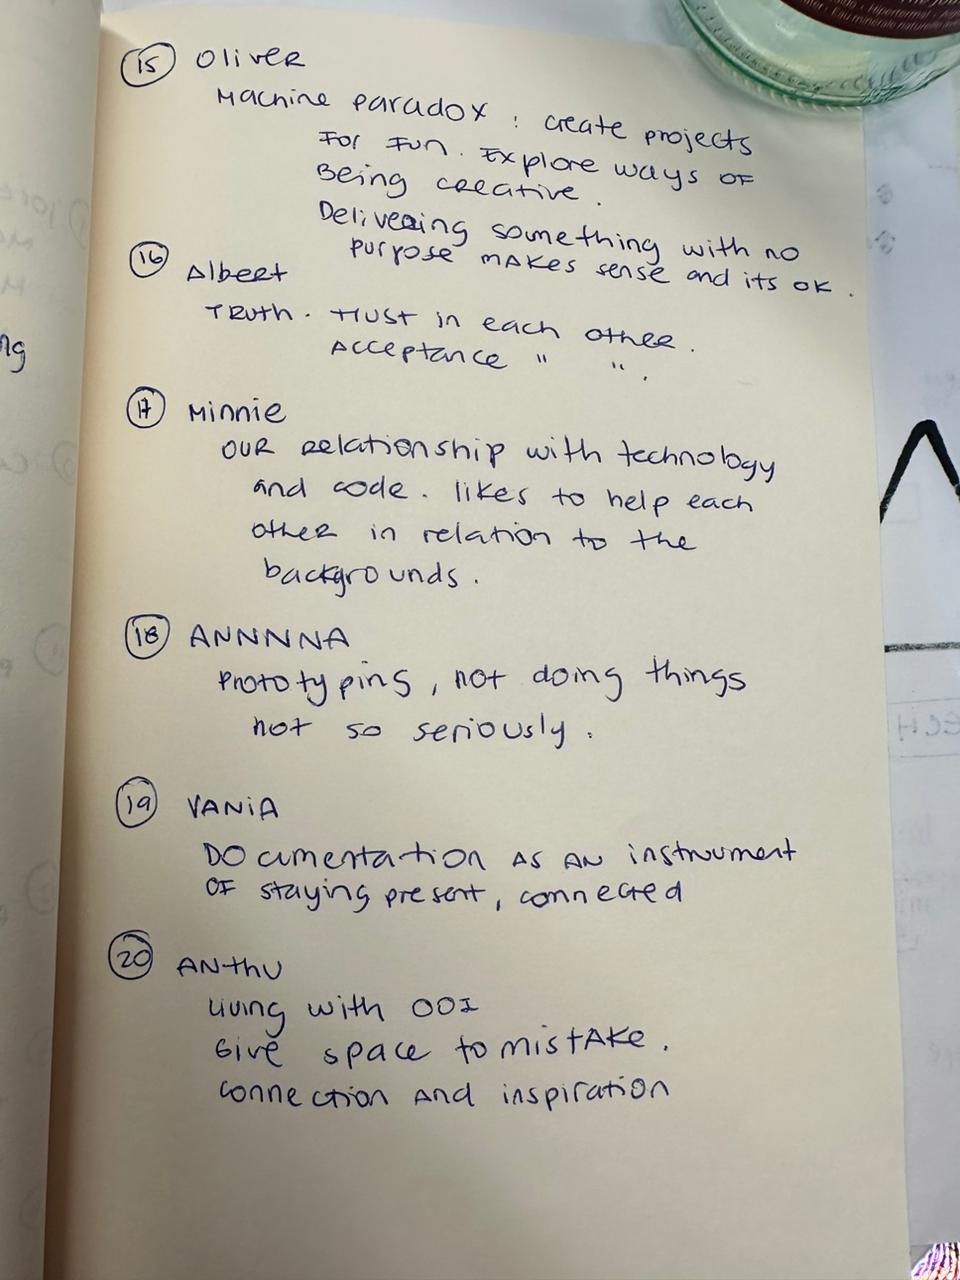 15 Oliver
Machine paradox : create projects
For Fun. Explore ways of
Being creative.
Delivering something with no
purpose makes sense and its ok.
16 Albert
Truth. trust in each other.
Acceptance " ".
17 Minnie
our relationship with technology
and code. likes to help each
other in relation to the
backgrounds.
18 ANNNNA
Prototyping, not doing things
not so seriously.
19 VANiA
Documentation as an instrument
of staying present, connected
20 Anthu
Living with OOI
Give space to mistake.
connection and inspiration
ng